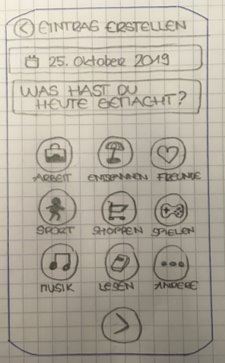 EINTRAG ERSTELLEN
25. Oktober 2019
WAS HAST DU
HEUTE GEMACHT?
ARBEIT ENTSPANNEN FREUNDE
SPORT SHOPPEN SPIELEN
MUSIK LESEN ANDERE